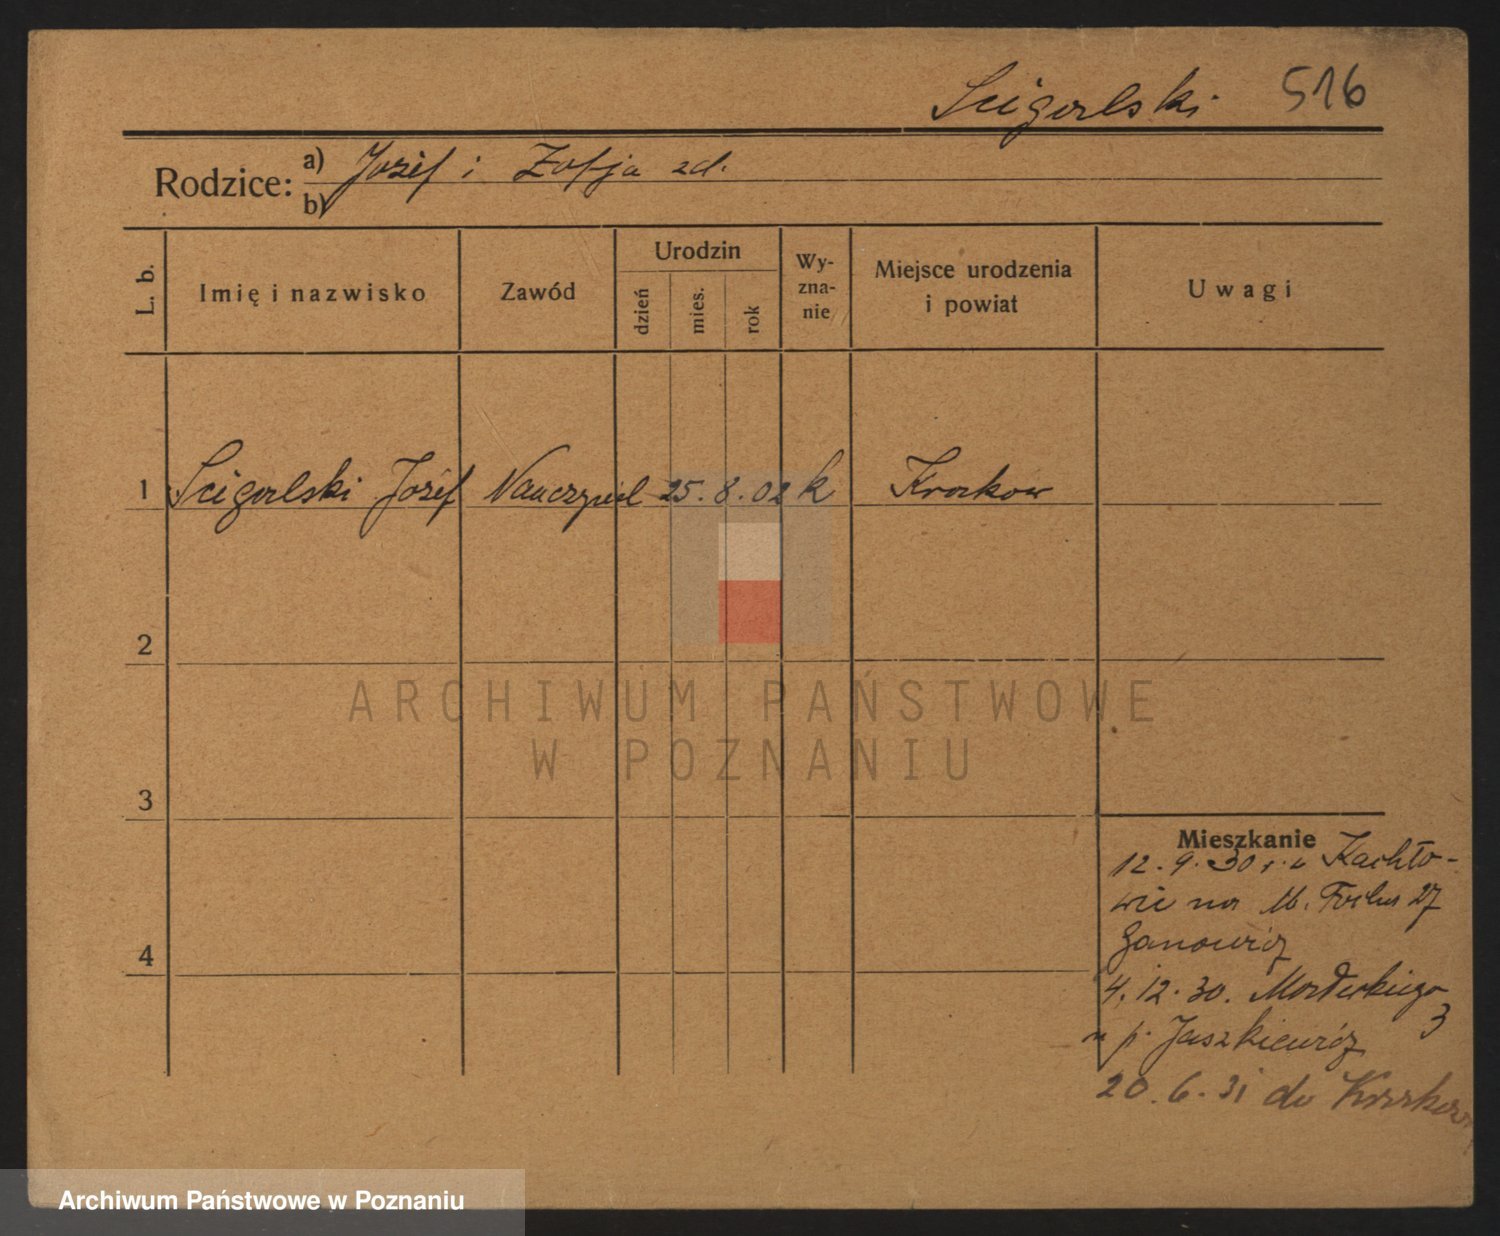 Scigalski 516
Rodzice: a) Józef i Zofja zd.
b)
L. b. Imię i nazwisko Zawód Urodzin dzień mies. rok Wy-zna-nie Miejsce urodzenia i powiat Uwagi
1 Scigalski Józef Nauczyciel 25. 8. 02 k Krakow
2
ARCHIWUM PAŃSTWOWE
W POZNANIU
3
Mieszkanie
12. 9. 30 r. z Kachło-
wic na M. Focha 27
Janowicz
4
4. 12. 30. 3
u p. Jaszkiewicz
20. 6. 31 do Krakowa
Archiwum Państwowe w Poznaniu